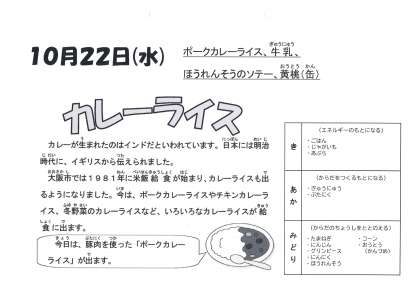 10月22日(水)
ポークカレーライス、牛乳、
ほうれんそうのソテー、黄桃(缶)
カレーライス
カレーが生まれたのはインドだといわれています。日本には明治
時代に、イギリスから伝えられました。
大阪市では1981年に米飯給食が始まり、カレーライスも出
るようになりました。今は、ポークカレーライスやチキンカレーラ
イス、冬野菜のカレーライスなど、いろいろなカレーライスが給
食に出ます。
今日は、豚肉を使った「ポークカレー
ライス」が出ます。
き
(エネルギーのもとになる)
・ごはん
・じゃがいも
・あぶら
あか
(からだをつくるもとになる)
・ぎゅうにゅう
・ぶたにく
みどり
(からだのちょうしをととのえる)
・たまねぎ ・コーン
・にんじん ・おうとう
・グリンピース (かんづめ)
・にんにく
・ほうれんそう